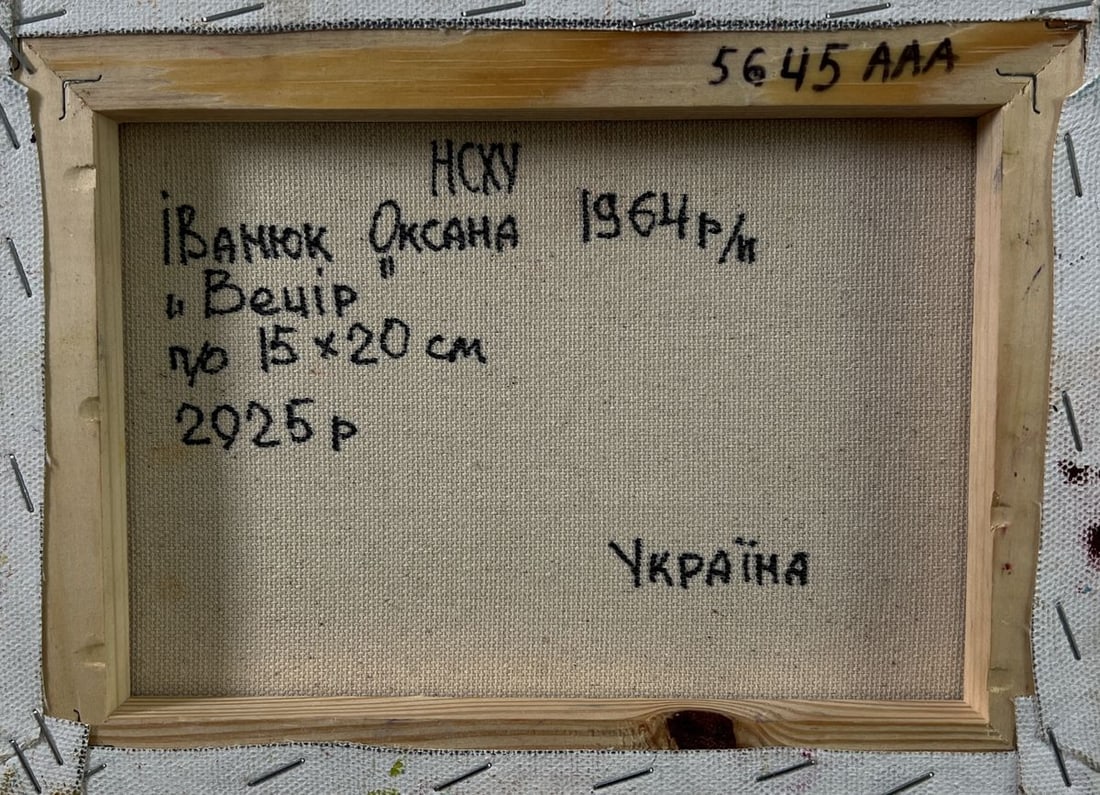 5645 ААА
НСХУ
Іванюк Оксана 1964 р/н
„Вечір"
п/о 15×20 см
2025 р
Україна